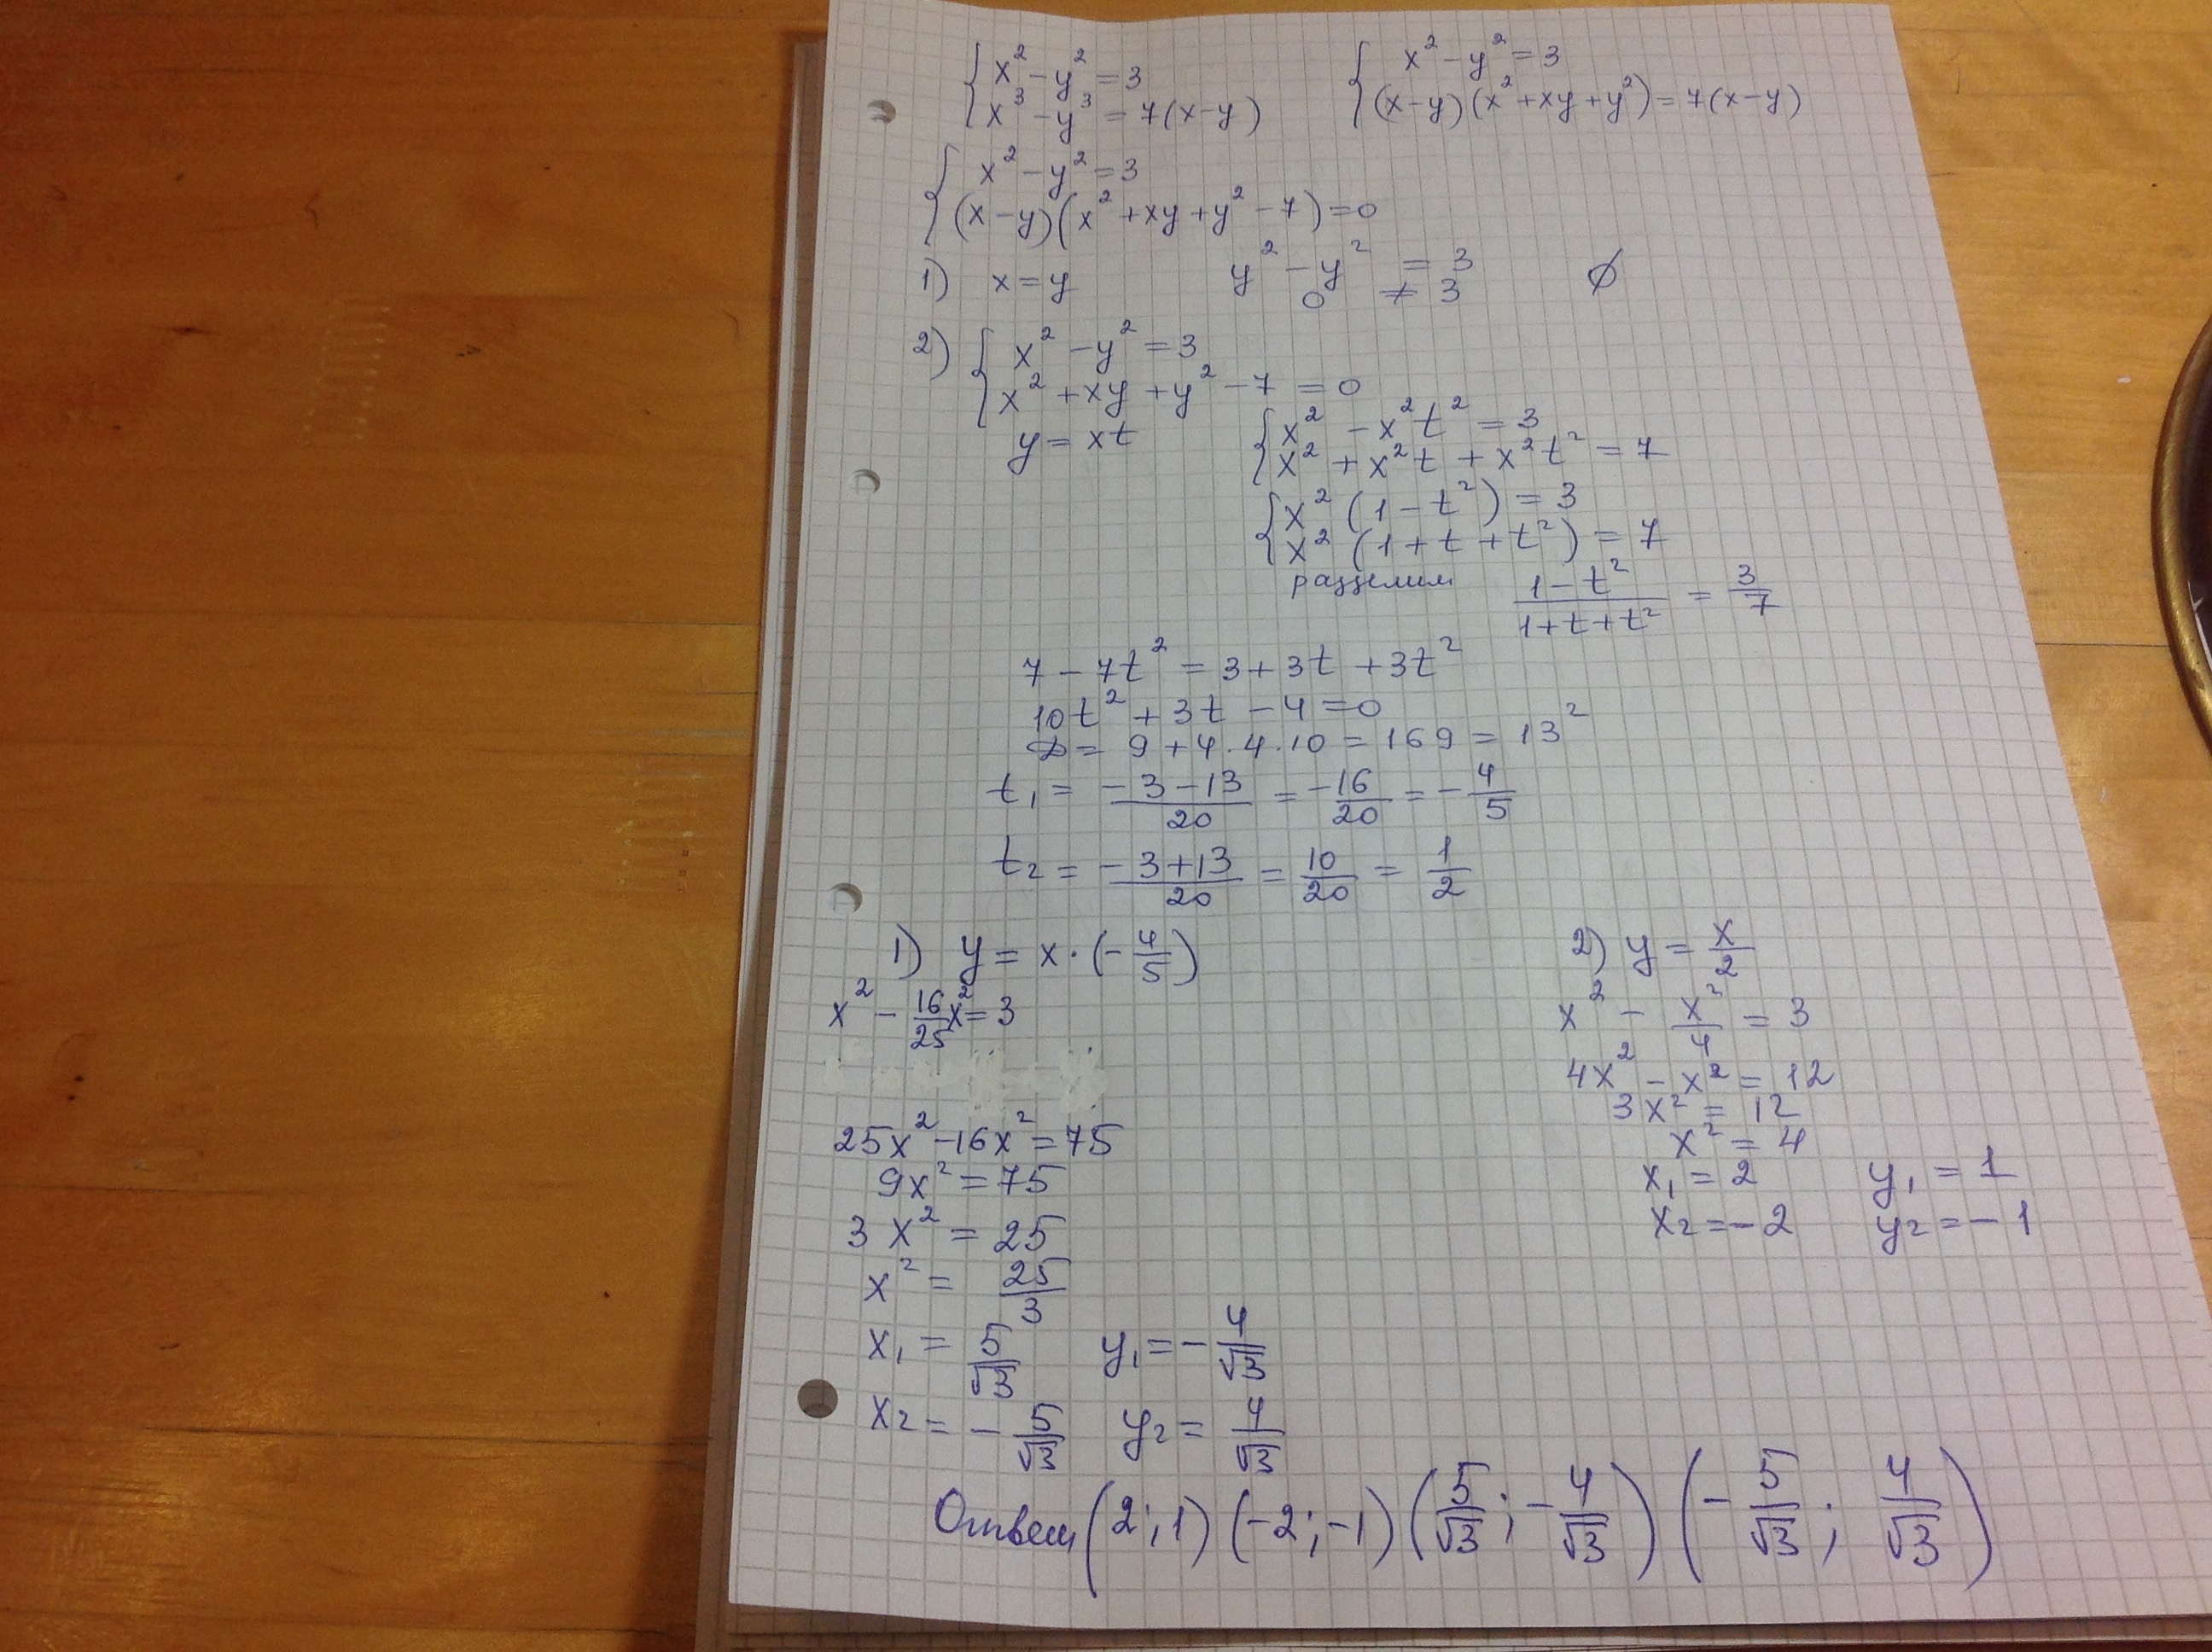 { x² - y² = 3
x³ - y³ = 7(x-y)
{ x² - y² = 3
(x-y)(x²+xy+y²) = 7(x-y)
{ x² - y² = 3
(x-y)(x²+xy+y²-7)=0
1) x=y y² - y² = 3 ∅
0 ≠ 3
2) { x² - y² = 3
x² + xy + y² - 7 = 0
y = xt
{ x² - x²t² = 3
x² + x²t + x²t² = 7
{ x² (1-t²) = 3
x² (1+t+t²) = 7
разделим (1-t²)/(1+t+t²) = 3/7
7 - 7t² = 3+3t+3t²
10t² + 3t - 4 = 0
D = 9+4·4·10 = 169 = 13²
t₁ = (-3-13)/20 = -16/20 = -4/5
t₂ = (-3+13)/20 = 10/20 = 1/2
1) y = x·(-4/5)
x² - 16/25 x² = 3
25x² - 16x² = 75
9x² = 75
3x² = 25
x² = 25/3
x₁ = 5/√3 y₁ = -4/√3
x₂ = -5/√3 y₂ = 4/√3
2) y = x/2
x² - x²/4 = 3
4x² - x² = 12
3x² = 12
x² = 4
x₁ = 2 y₁ = 1
x₂ = -2 y₂ = -1
Ответ (2;1) (-2;-1) (5/√3; -4/√3) (-5/√3; 4/√3)